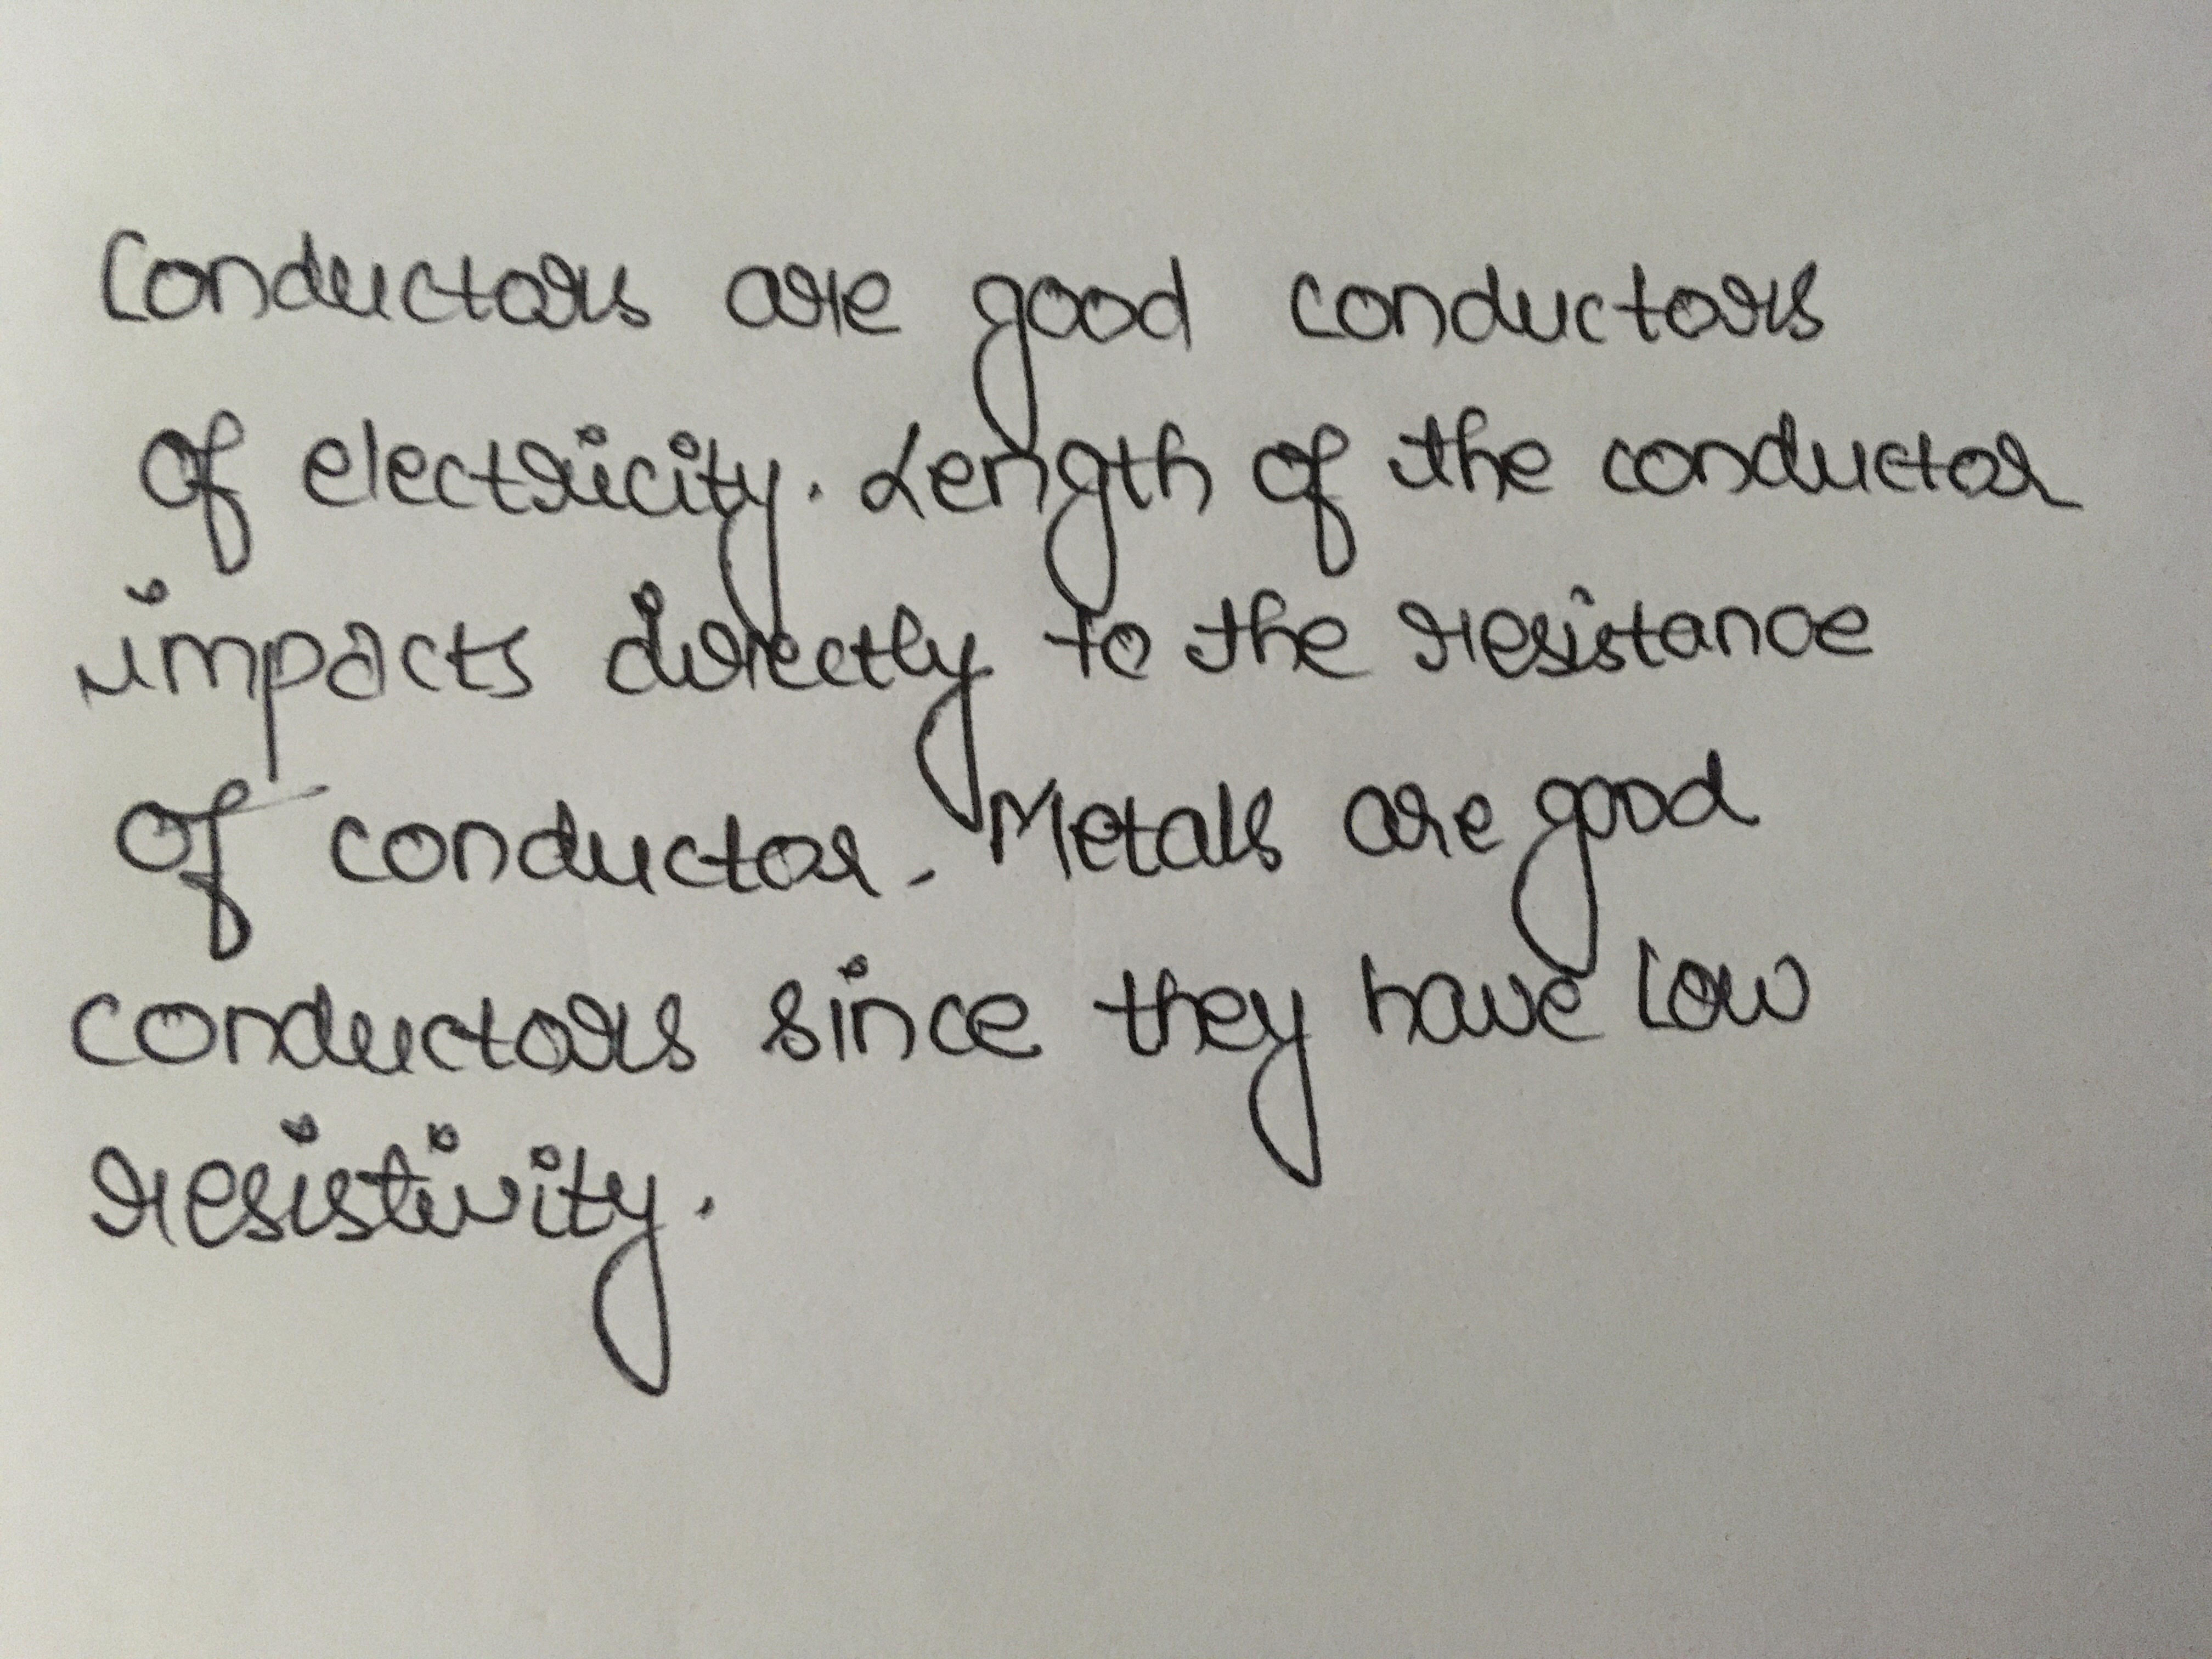 Conductors are good conductors
of electricity. Length of the conductor
impacts directly to the resistance
of conductor. Metals are good
conductors since they have low
resistivity.